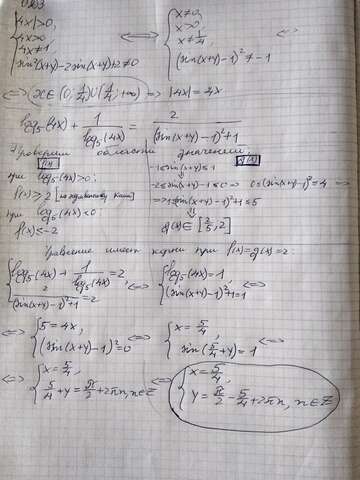 |4x|>0,
4x>0,
4x≠1
sin²(x+y)-2sin(x+y)+2≠0
⟺
x≠0,
x>0,
x≠1/4,
(sin(x+y)-1)²≠-1
⟺
⟺ (x∈(0;1/4)∪(1/4;+∞) ⟹ |4x|=4x
log₅(4x)+1/log₅(4x) = 2/((sin(x+y)-1)²+1)
Уравняем области значений:
f(x)
g(x)
при log₅(4x)>0:
f(x)≥2 [по неравенству Коши]
при log₅(4x)<0:
f(x)≤-2
-1≤sin(x+y)≤1
-2≤sin(x+y)-1≤0 ⟹ 0≤(sin(x+y)-1)²≤4 ⟹
⟹ 1≤(sin(x+y)-1)²+1≤5
g(x)∈[2/5;2]
Уравнение имеет корни при f(x)=g(x)=2:
log₅(4x)+1/log₅(4x)=2,
2/((sin(x+y)-1)²+1)=2
⟺
log₅(4x)=1,
(sin(x+y)-1)²+1=1
⟺
5=4x,
(sin(x+y)-1)²=0
⟺
x=5/4,
sin(5/4+y)=1
⟺
x=5/4,
5/4+y=π/2+2πn, n∈Z
⟺
x=5/4,
y=π/2-5/4+2πn, n∈Z